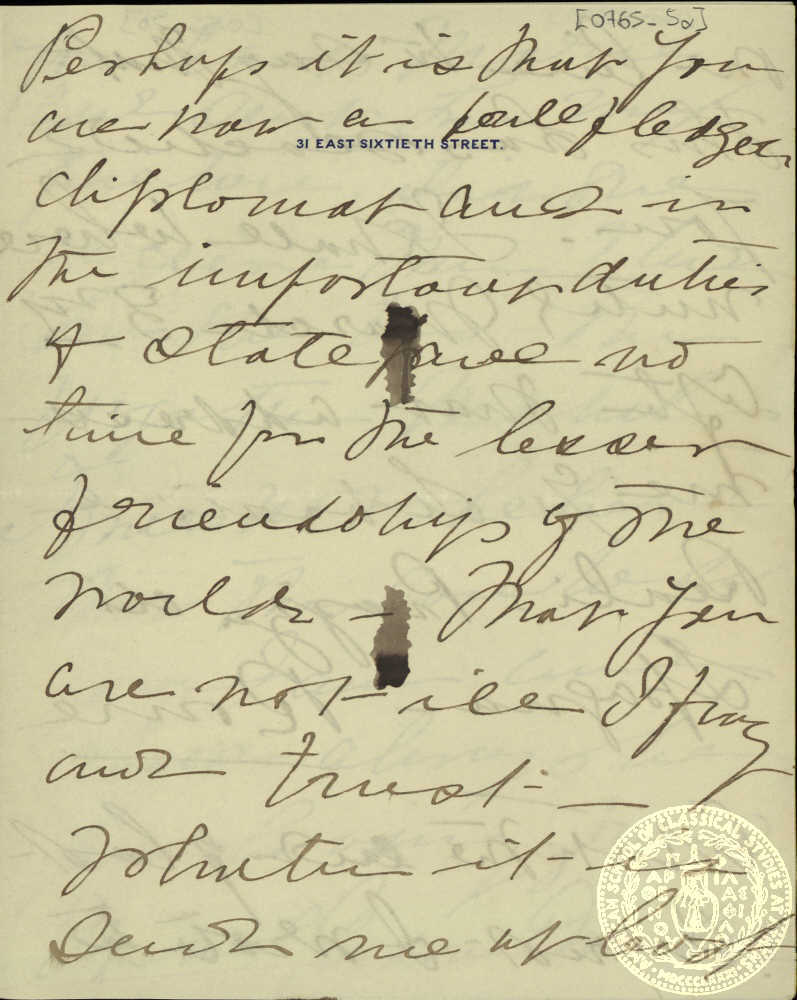 [0765-5a]
Perhaps it is that you
are now a full fledged
31 EAST SIXTIETH STREET.
diplomat and in
the important duties
of State have no
time for the lesser
friendships of the
world – that you
are not ill I pray
and trust –
Whatever it is
send me at least
AMERICAN SCHOOL OF CLASSICAL STUDIES AT
MDCCCLXXXI